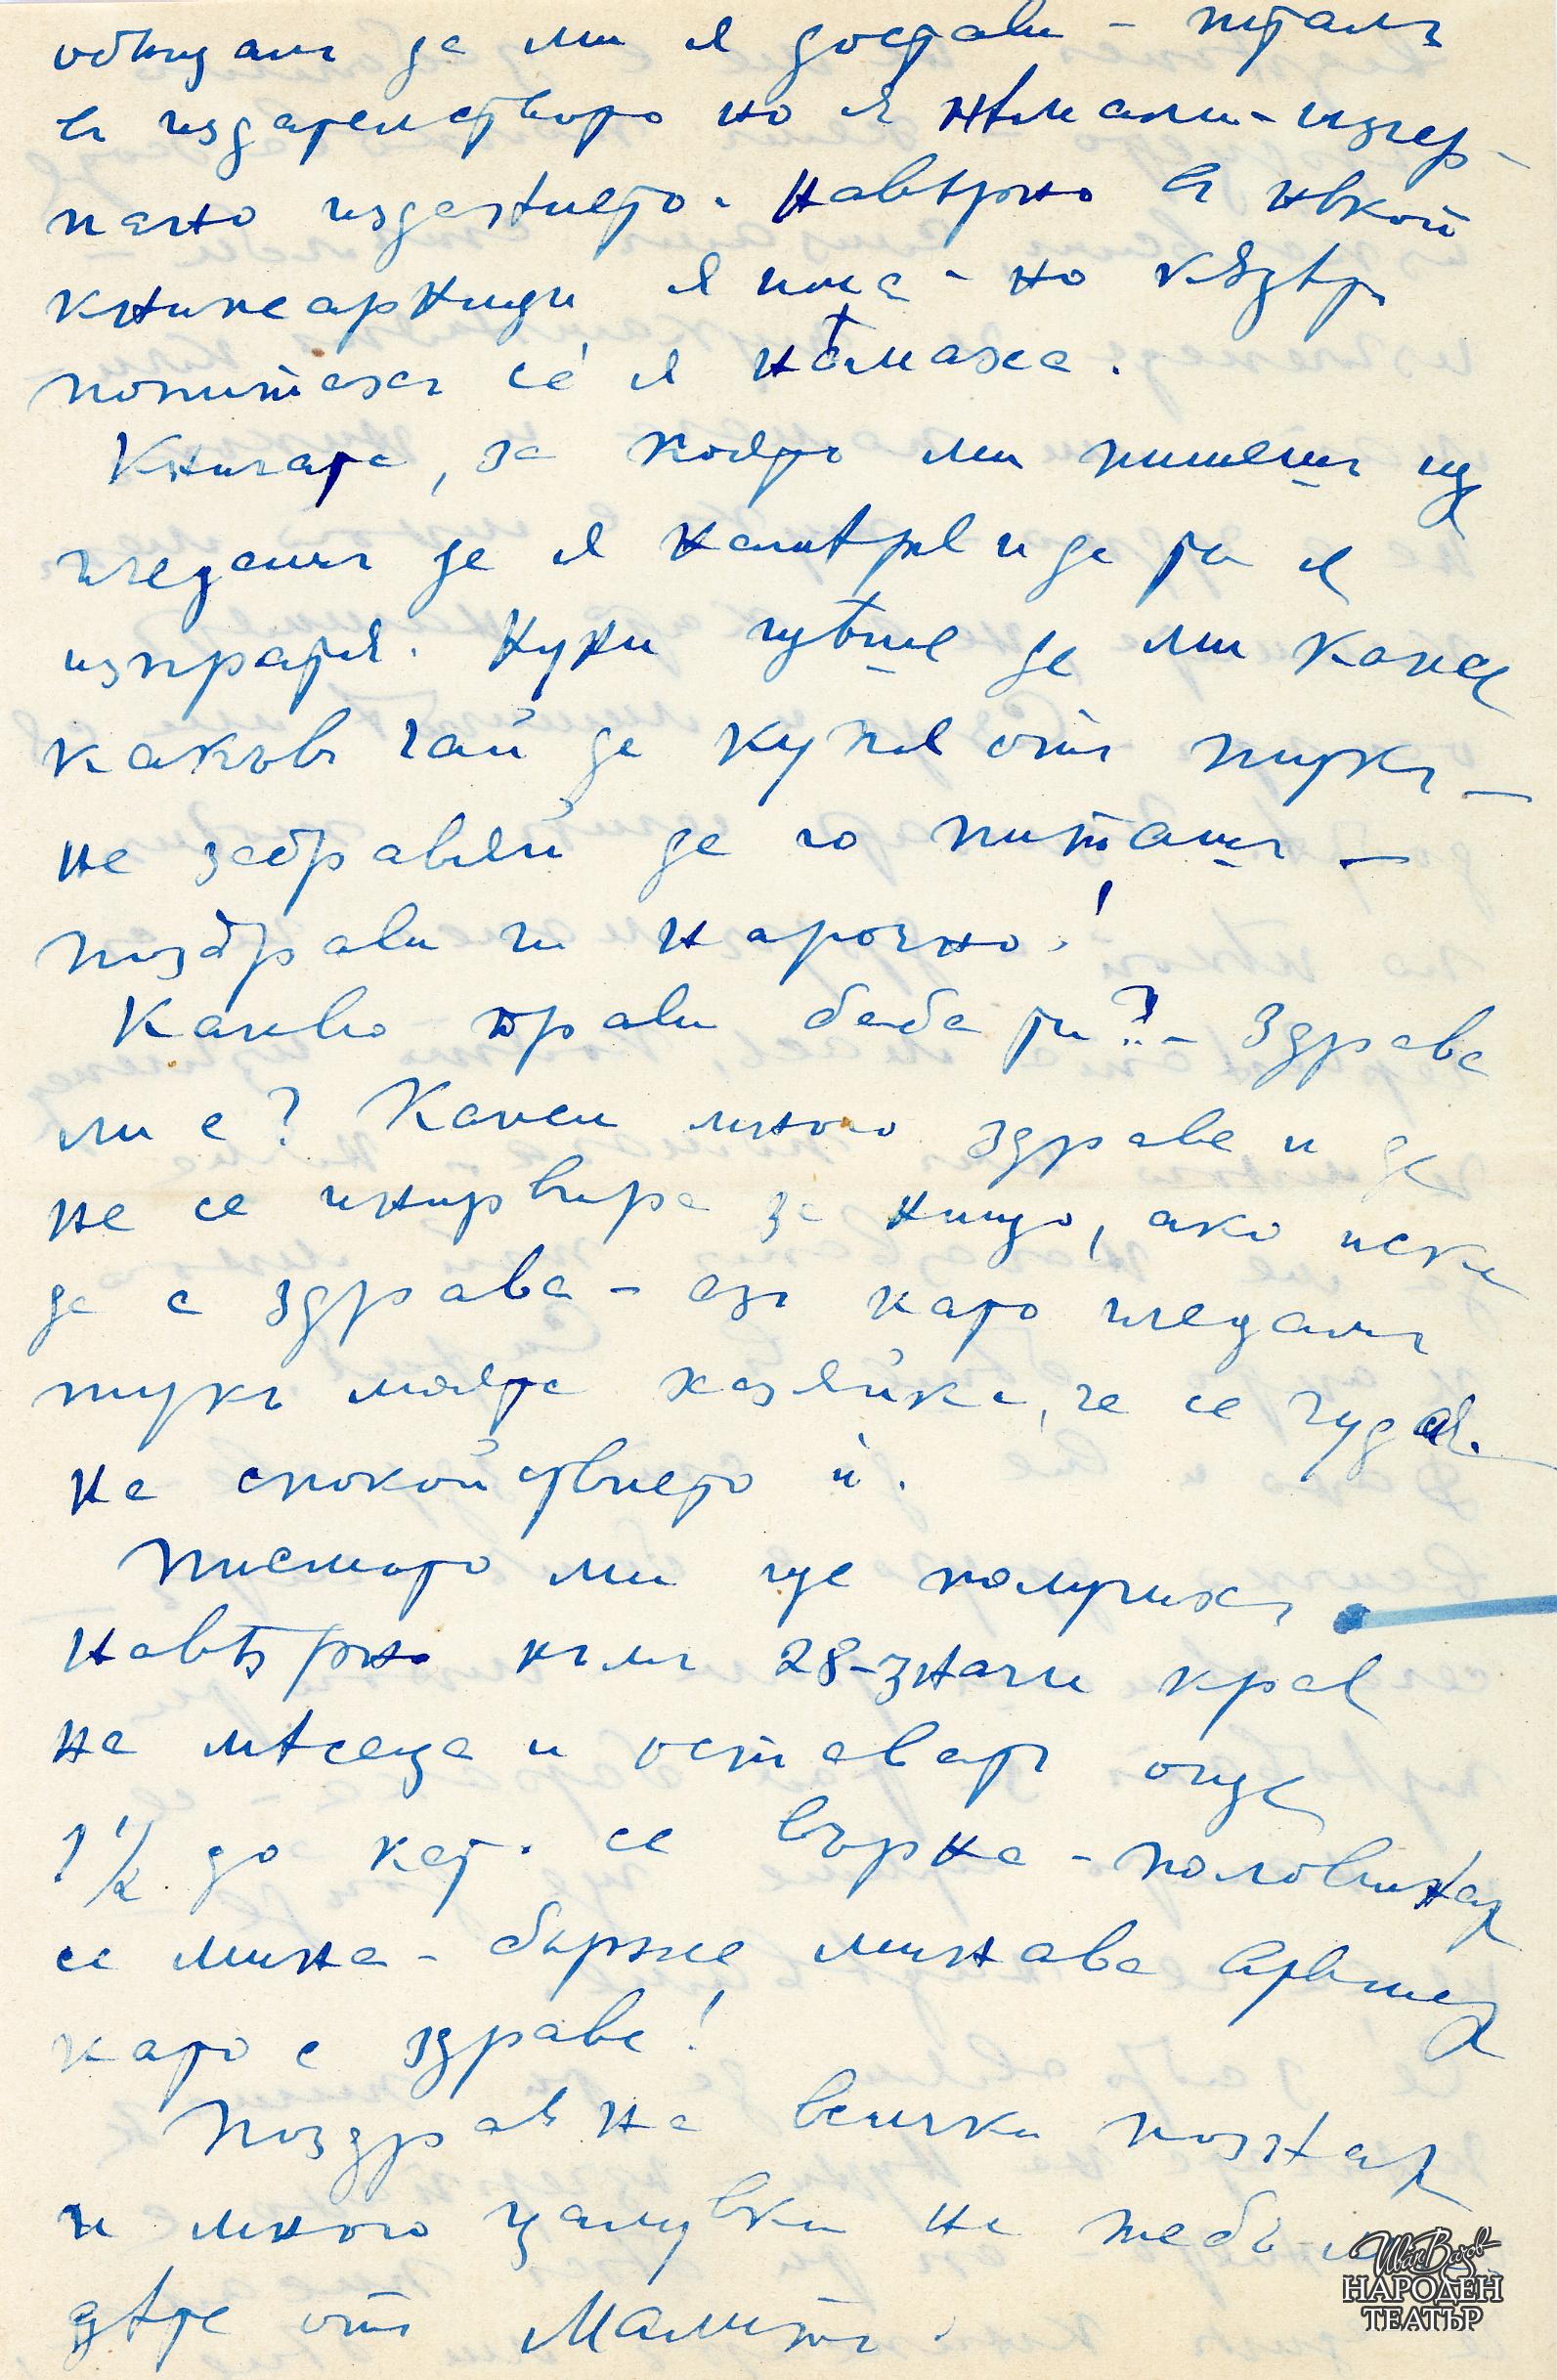 обещаль да ми я достави – питалъ
въ издателството но я нѣмали – изчер-
пано изданието. Навѣрно въ нѣкой
книжарници я има – но кѫдѣто
попитахъ се я нѣмаха.
Книгата, за която ми пишешъ ще
гледамъ да я намѣря и да ти я
изпратя. Куки щѣше да ми каже
какъвъ чай да купя отъ тукъ –
не забравяй да го питашъ –
поздрави ги нарочно!
Какво прави баба ти? – Здрава
ли е? Кажи много здраве и да
не се инервира за нищо, ако иска
да е здрава – азъ като гледамъ
тукъ моята хазяйка, че се чудя
на спокойствието ѝ.
Писмото ми ще получишъ
навѣрно къмъ 28 – значи края
на мѣсеца и оставатъ още
1 1/2 до като се върна – половината
се мина – бърже минава времето
като е здраве!
Поздрав на всички познати
и много целувки на тебъ
дѣте отъ Мама ти.
Иван Вазов
НАРОДЕН
ТЕАТЪР